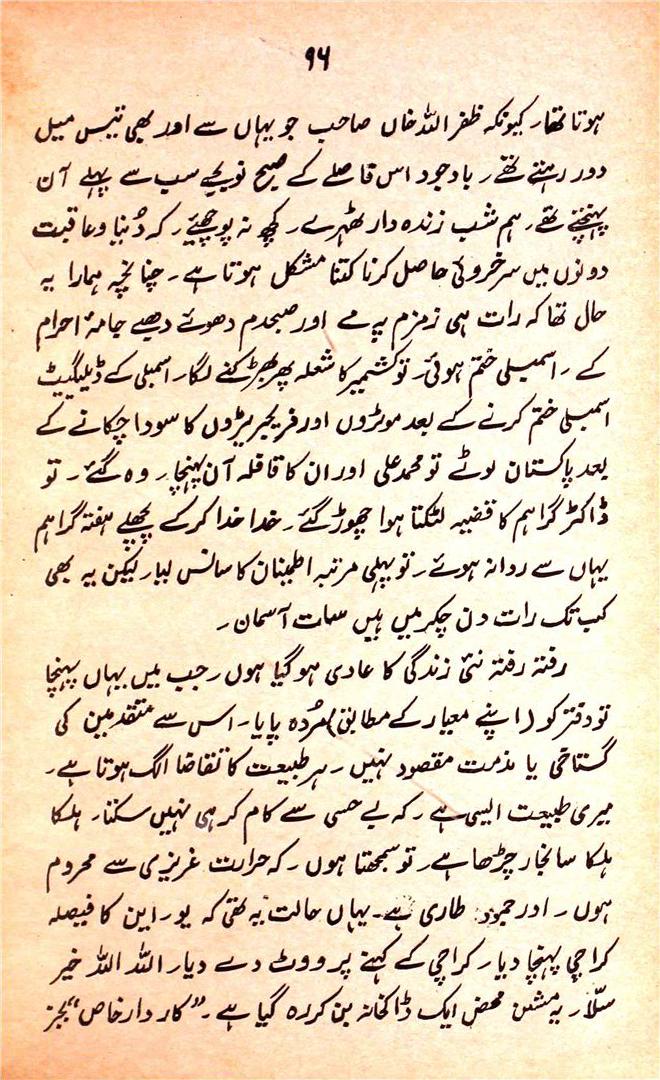 ۹۶
ہوتا تھا۔ کیونکہ ظفر اللہ خاں صاحب جو یہاں سے اور بھی تیس میل
دور رہتے تھے۔ باوجود اس فاصلے کے صبح نو بجے سب سے پہلے آن
پہنچتے تھے۔ ہم شب زندہ دار ٹھہرے۔ کچھ نہ پوچھیئے۔ کہ دُنیا و عاقبت
دونوں میں سرخروئی حاصل کرنا کتنا مشکل ہوتا ہے۔ چنانچہ ہمارا یہ
حال تھا کہ رات ہی زمزم پہ مے اور صبحدم دھوئے دھبے جامۂ احرام
کے۔ اسمبلی ختم ہوئی۔ تو کشمیر کا شعلہ پھر بھڑکنے لگا۔ اسمبلی کے ڈیلیگیٹ
اسمبلی ختم کرنے کے بعد موٹروں اور فریجریٹروں کا سودا چکانے کے
بعد پاکستان لوٹے تو محمد علی اور ان کا قافلہ آن پہنچا۔ وہ گئے۔ تو
ڈاکٹر گراہم کا قضیہ لٹکتا ہوا چھوڑ گئے۔ خدا خدا کر کے پچھلے ہفتہ گراہم
یہاں سے روانہ ہوئے۔ تو پہلی مرتبہ اطمینان کا سانس لیا۔ لیکن یہ بھی
کب تک رات دن چکر میں ہیں سات آسمان۔
رفتہ رفتہ نئی زندگی کا عادی ہو گیا ہوں۔ جب میں یہاں پہنچا
تو دفتر کو (اپنے معیار کے مطابق) مُردہ پایا۔ اس سے متقدمین کی
گستاخی یا مذمت مقصود نہیں۔ ہر طبیعت کا تقاضا الگ ہوتا ہے۔
میری طبیعت ایسی ہے۔ کہ بے حسی سے کام کر ہی نہیں سکتا۔ ہلکا
ہلکا سا بخار چڑھا ہے۔ تو سمجھتا ہوں۔ کہ حرارت غریزی سے محروم
ہوں۔ اور جمود طاری ہے۔ یہاں حالت یہ تھی کہ یو۔ این کا فیصلہ
کراچی پہنچا دیا۔ کراچی کے کہنے پر ووٹ دے دیا۔ اللہ اللہ خیر
سلّا۔ یہ مشن محض ایک ڈاکخانہ بن کر رہ گیا ہے۔ "کاردار خاص" بجز